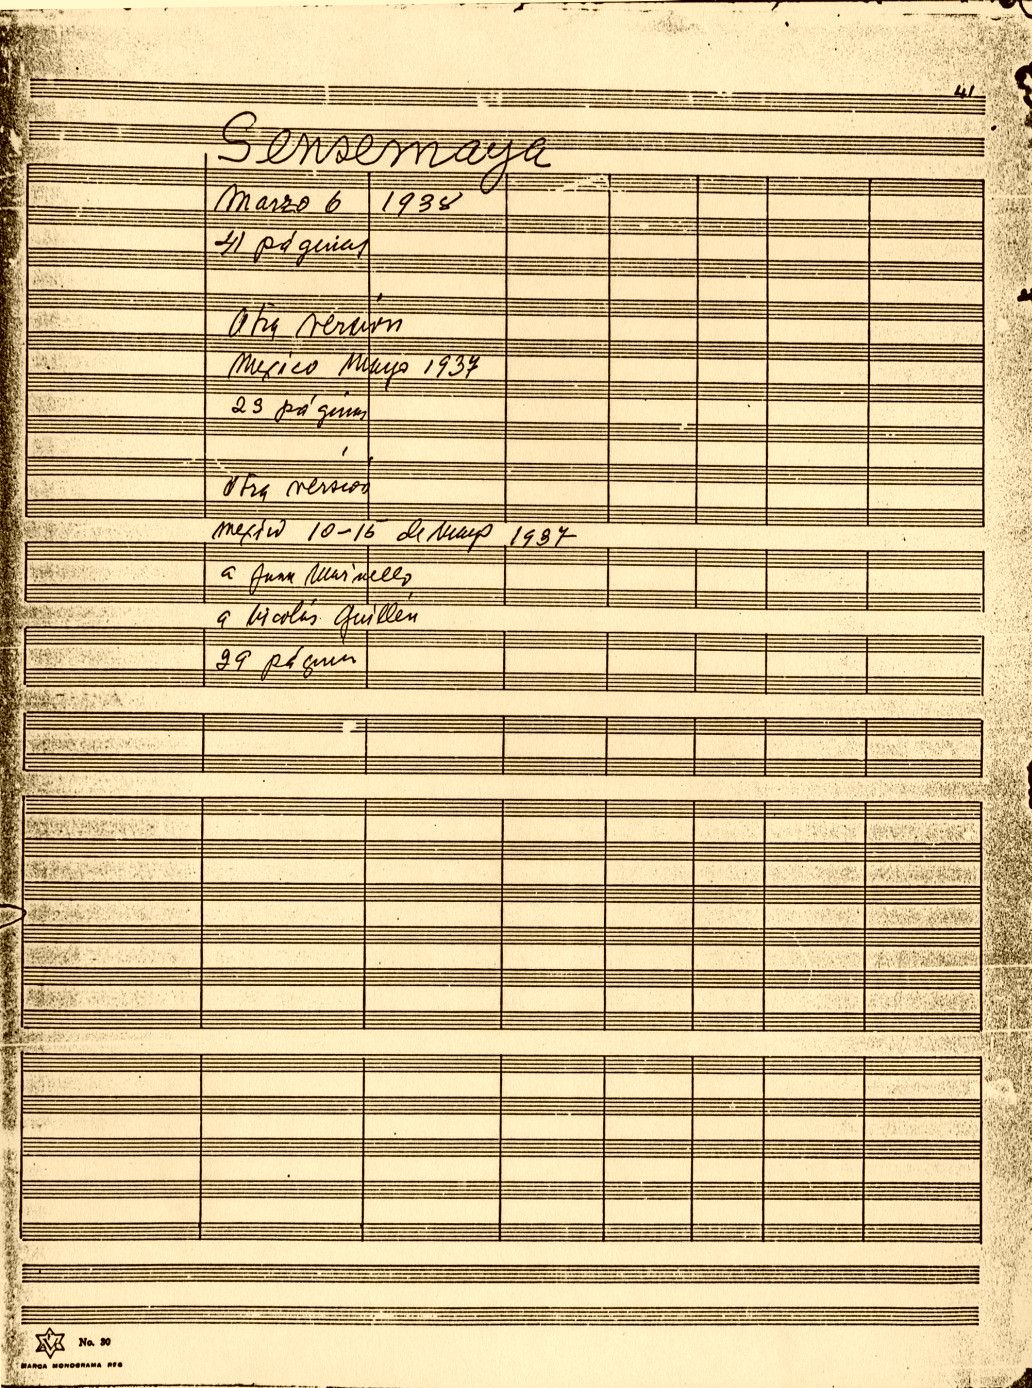 41
Sensemaya
Marzo 6 1938
41 páginas
Otra versión
Mexico Mayo 1937
23 páginas
Otra versión
Mexico 10-15 de Mayo 1937
a Juan Marinello
a Nicolás Guillén
39 páginas
No. 30
MARCA MONOGRAMA REG